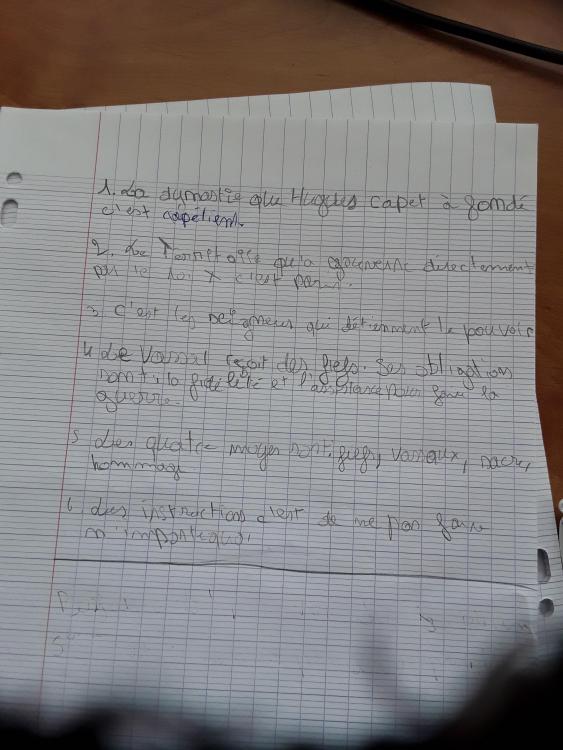 1. La dynastie que Hugues capet à fondé
c'est capétiens.
2. Le Territoire qu'a gouverné directement
par le roi c'est Paris.
3 c'est les seigneurs qui détiennent le pouvoir
4 Le vassal reçoit des fiefs. Ses obligations
sont: la fidélité et l'assistance pour faire la
guerre.
5 Les quatre moyes sont: fiefs, vassaux, sacre,
hommage
6 Les instructions c'est de ne pas faire
n'importequoi.